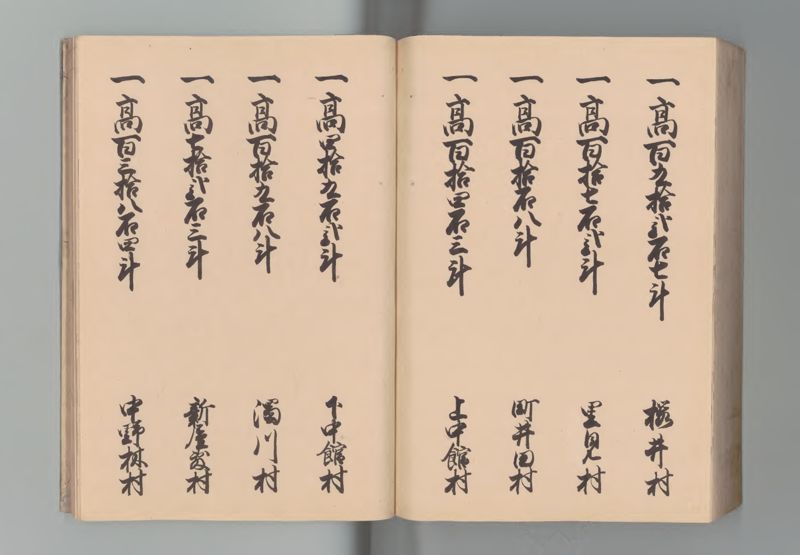 一高百九拾弐石七斗
桜井村
一高百拾七石弐斗
里見村
一高百拾石八斗
町井田村
一高百拾四石三斗
上中館村
一高四拾九石弐斗
下中館村
一高百拾九石八斗
濁川村
一高七拾弐石三斗
新屋敷村
一高百三拾八石四斗
中野林村